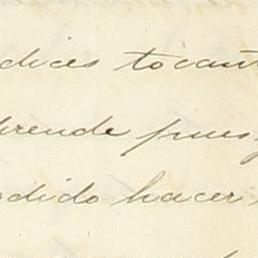 dices tocant
prende pues
odido hacer